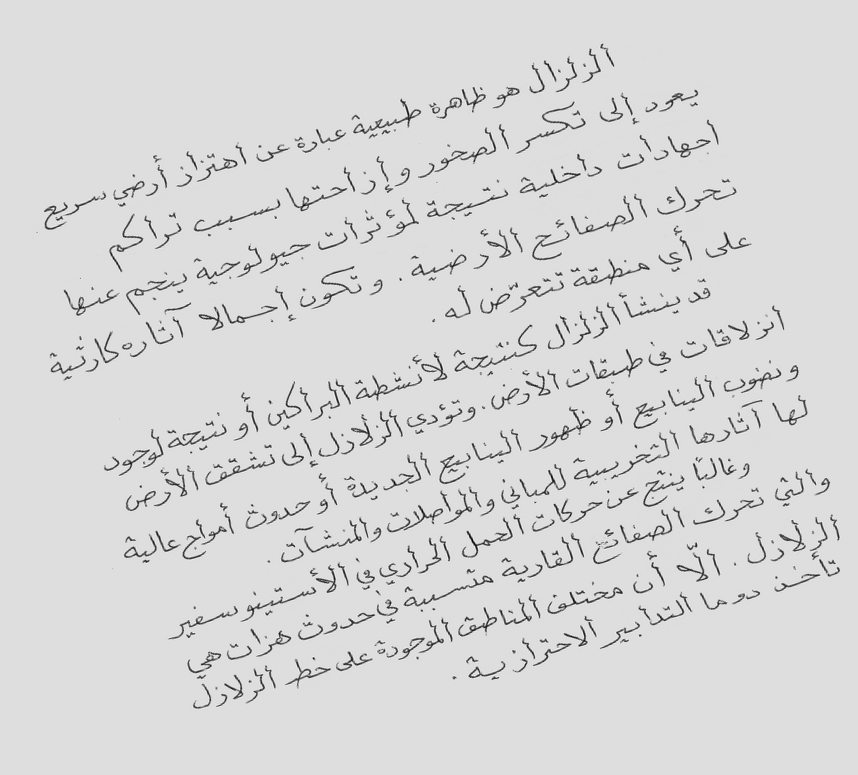 الزلزال هو ظاهرة طبيعية عبارة عن اهتزاز أرضي سريع
يعود إلى تكسر الصخور وإزاحتها بسبب تراكم
اجهادات داخلية نتيجة لمؤثرات جيولوجية ينجم عنها
تحرك الصفائح الأرضية. وتكون إجمالا آثاره كارثية
على أي منطقة تتعرّض له.
قد ينشأ الزلزال كنتيجة لأنشطة البراكين أو نتيجة لوجود
انزلاقات في طبقات الأرض. وتؤدي الزلازل إلى تشقق الأرض
ونضوب الينابيع أو ظهور الينابيع الجديدة أو حدوث أمواج عالية
لها آثارها التخريبية للمباني والمواصلات والمنشآت.
وغالبًا ينتج عن حركات الحمل الحراري في الأستينوسفير
والتي تحرك الصفائح القارية متسببة في حدوث هزات هي
الزلازل. الّا أن مختلف المناطق الموجودة على خط الزلازل
تأخذ دوما التدابير الاحترازية.